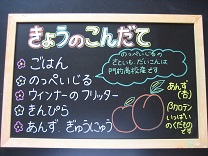 きょうのこんだて
☆ ごはん
☆ のっぺいじる
☆ ウィンナーのフリッター
☆ きんぴら
☆ あんず ぎゅうにゅう
のっぺいじるの
さといも、だいこんは
門的高校産
です
あんず
(杏)
βカロテン
いっぱい
のくだもの
です